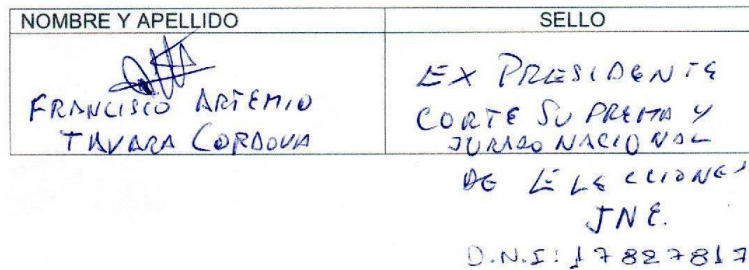 NOMBRE Y APELLIDO
SELLO
FRANCISCO ARTEMIO
TAVARA CORDOVA
EX PRESIDENTE
CORTE SUPREMA Y
JURADO NACIONAL
DE ELECCIONES
JNE.
D.N.I: 17827817